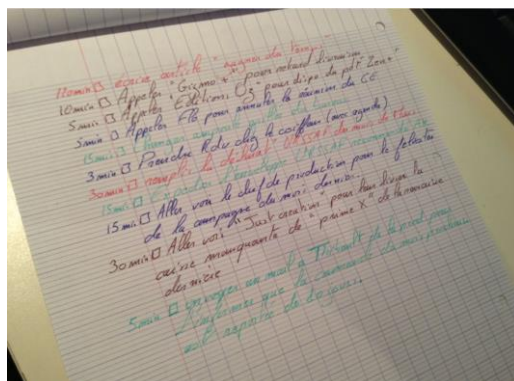 110min □ écrire article "gagner du temps"
10min □ Appeler "Gizmo" pour retard livraison
5min □ Appeler "Editions G" pour dispo du pdt "Zen"
5min □ Appeler FB pour annuler la réunion du CE
15min □
3min □ Prendre Rdv chez le coiffeur (mes agenda)
30min □ remplir la déclarat° URSSAF du mois de
15min □ l'enveloppe URSSAF
15min □ Aller voir le chef de production pour le féliciter
de la campagne du mois dernier.
30min □ Aller voir "Just création" pour leur livrer la
caisse manquante de "prime X" de la semaine
dernière
5min □ envoyer un mail à Thibault de la prod pour
l'informer que la commande du mois prochain
est reportée de 20 jours.